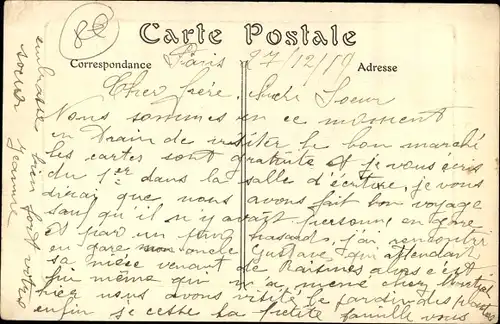 80
Carte Postale
Correspondance
Adresse
Paris 27/12/19
Cher frère, chère Soeur
Nous sommes en ce moment
en train de visiter le bon marché
les cartes sont gratuite et je vous écris
du 1er dans la salle d'écriture, je vous
dirai que nous avons fait bon voyage
sauf qu'il n'y avait personne en gare
et par un pur hasard, j'ai rencontré
en gare mon oncle Gustave qui attendant
sa nièce venant de Raismes alors c'est
lui même qui m'a mené chez
hier nous avons visité le jardin des plantes
enfin je cesse la petite famille vous
embrasse bien fort votre
soeur Jeanne